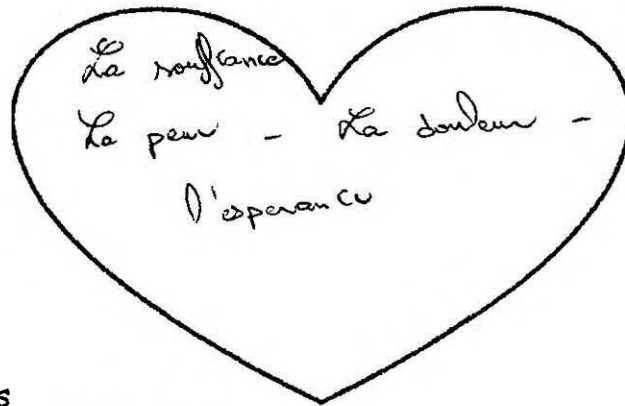 La souffrance
La peur - La douleur -
l'esperance
s